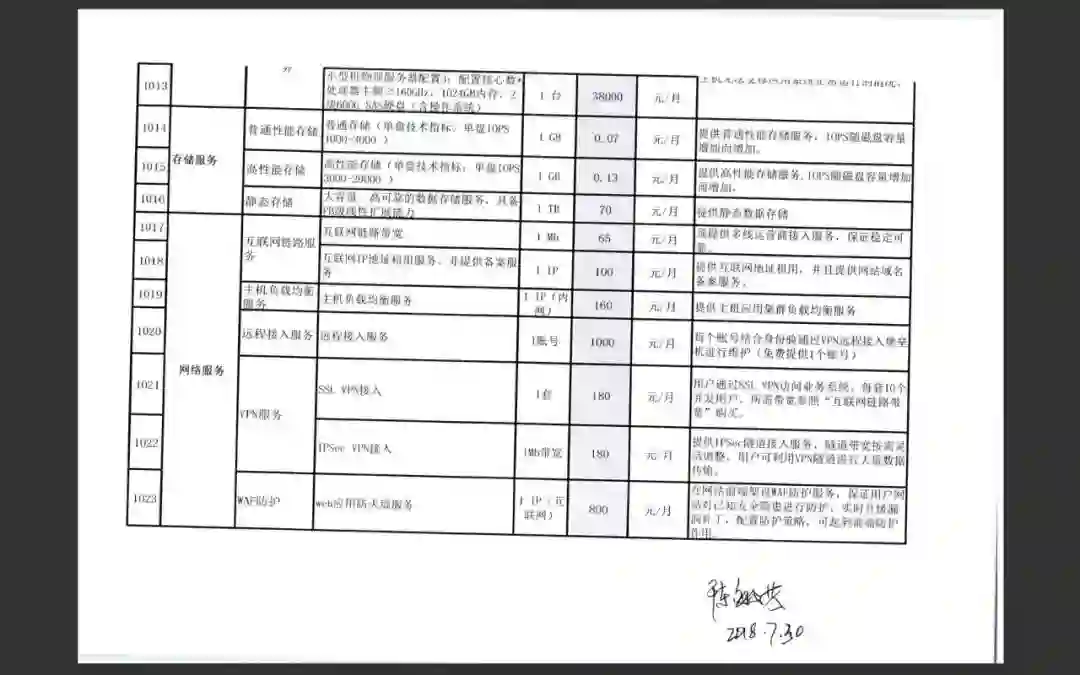 1013
处理器主频≥160GHz, 1024GB内存, 2
块600G SAS硬盘（含操作系统）
1 台
38000
元/月
1014
存储服务
普通性能存储
普通存储（单盘技术指标：单盘IOPS
1000-4000 ）
1 GB
0.07
元/月
提供普通性能存储服务，IOPS随磁盘容量
增加而增加。
1015
高性能存储
高性能存储（单盘技术指标：单盘IOPS
3000-20000 ）
1 GB
0.13
元/月
提供高性能存储服务,IOPS随磁盘容量增加
而增加。
1016
静态存储
大容量、高可靠的数据存储服务，具备
PB级线性扩展能力
1 TB
70
元/月
提供静态数据存储
1017
网络服务
互联网链路服
务
互联网链路带宽
1 Mb
65
元/月
须提供多线运营商接入服务，保证稳定可
靠。
1018
互联网IP地址租用服务，并提供备案服
务
1 IP
100
元/月
提供互联网地址租用，并且提供网站域名
备案服务。
1019
主机负载均衡
服务
主机负载均衡服务
1 IP（内
网）
160
元/月
提供主机应用集群负载均衡服务
1020
远程接入服务
远程接入服务
1账号
1000
元/月
每个账号结合身份验通过VPN远程接入堡垒
机进行维护（免费提供1个账号）
1021
VPN服务
SSL VPN接入
1套
180
元/月
用户通过SSL VPN访问业务系统，每套10个
并发用户，所需带宽参照“互联网链路带
宽”购买。
1022
IPSec VPN接入
1Mb带宽
180
元/月
提供IPSec隧道接入服务，隧道带宽按需灵
活调整，用户可利用VPN隧道进行大量数据
传输。
1023
WAF防护
web应用防火墙服务
1 IP（互
联网）
800
元/月
在网站前端架设WAF防护服务，保证用户网
站对已知安全隐患进行防护、实时升级漏
洞补丁，配置防护策略，可起到前端防护
作用。
2018.7.30